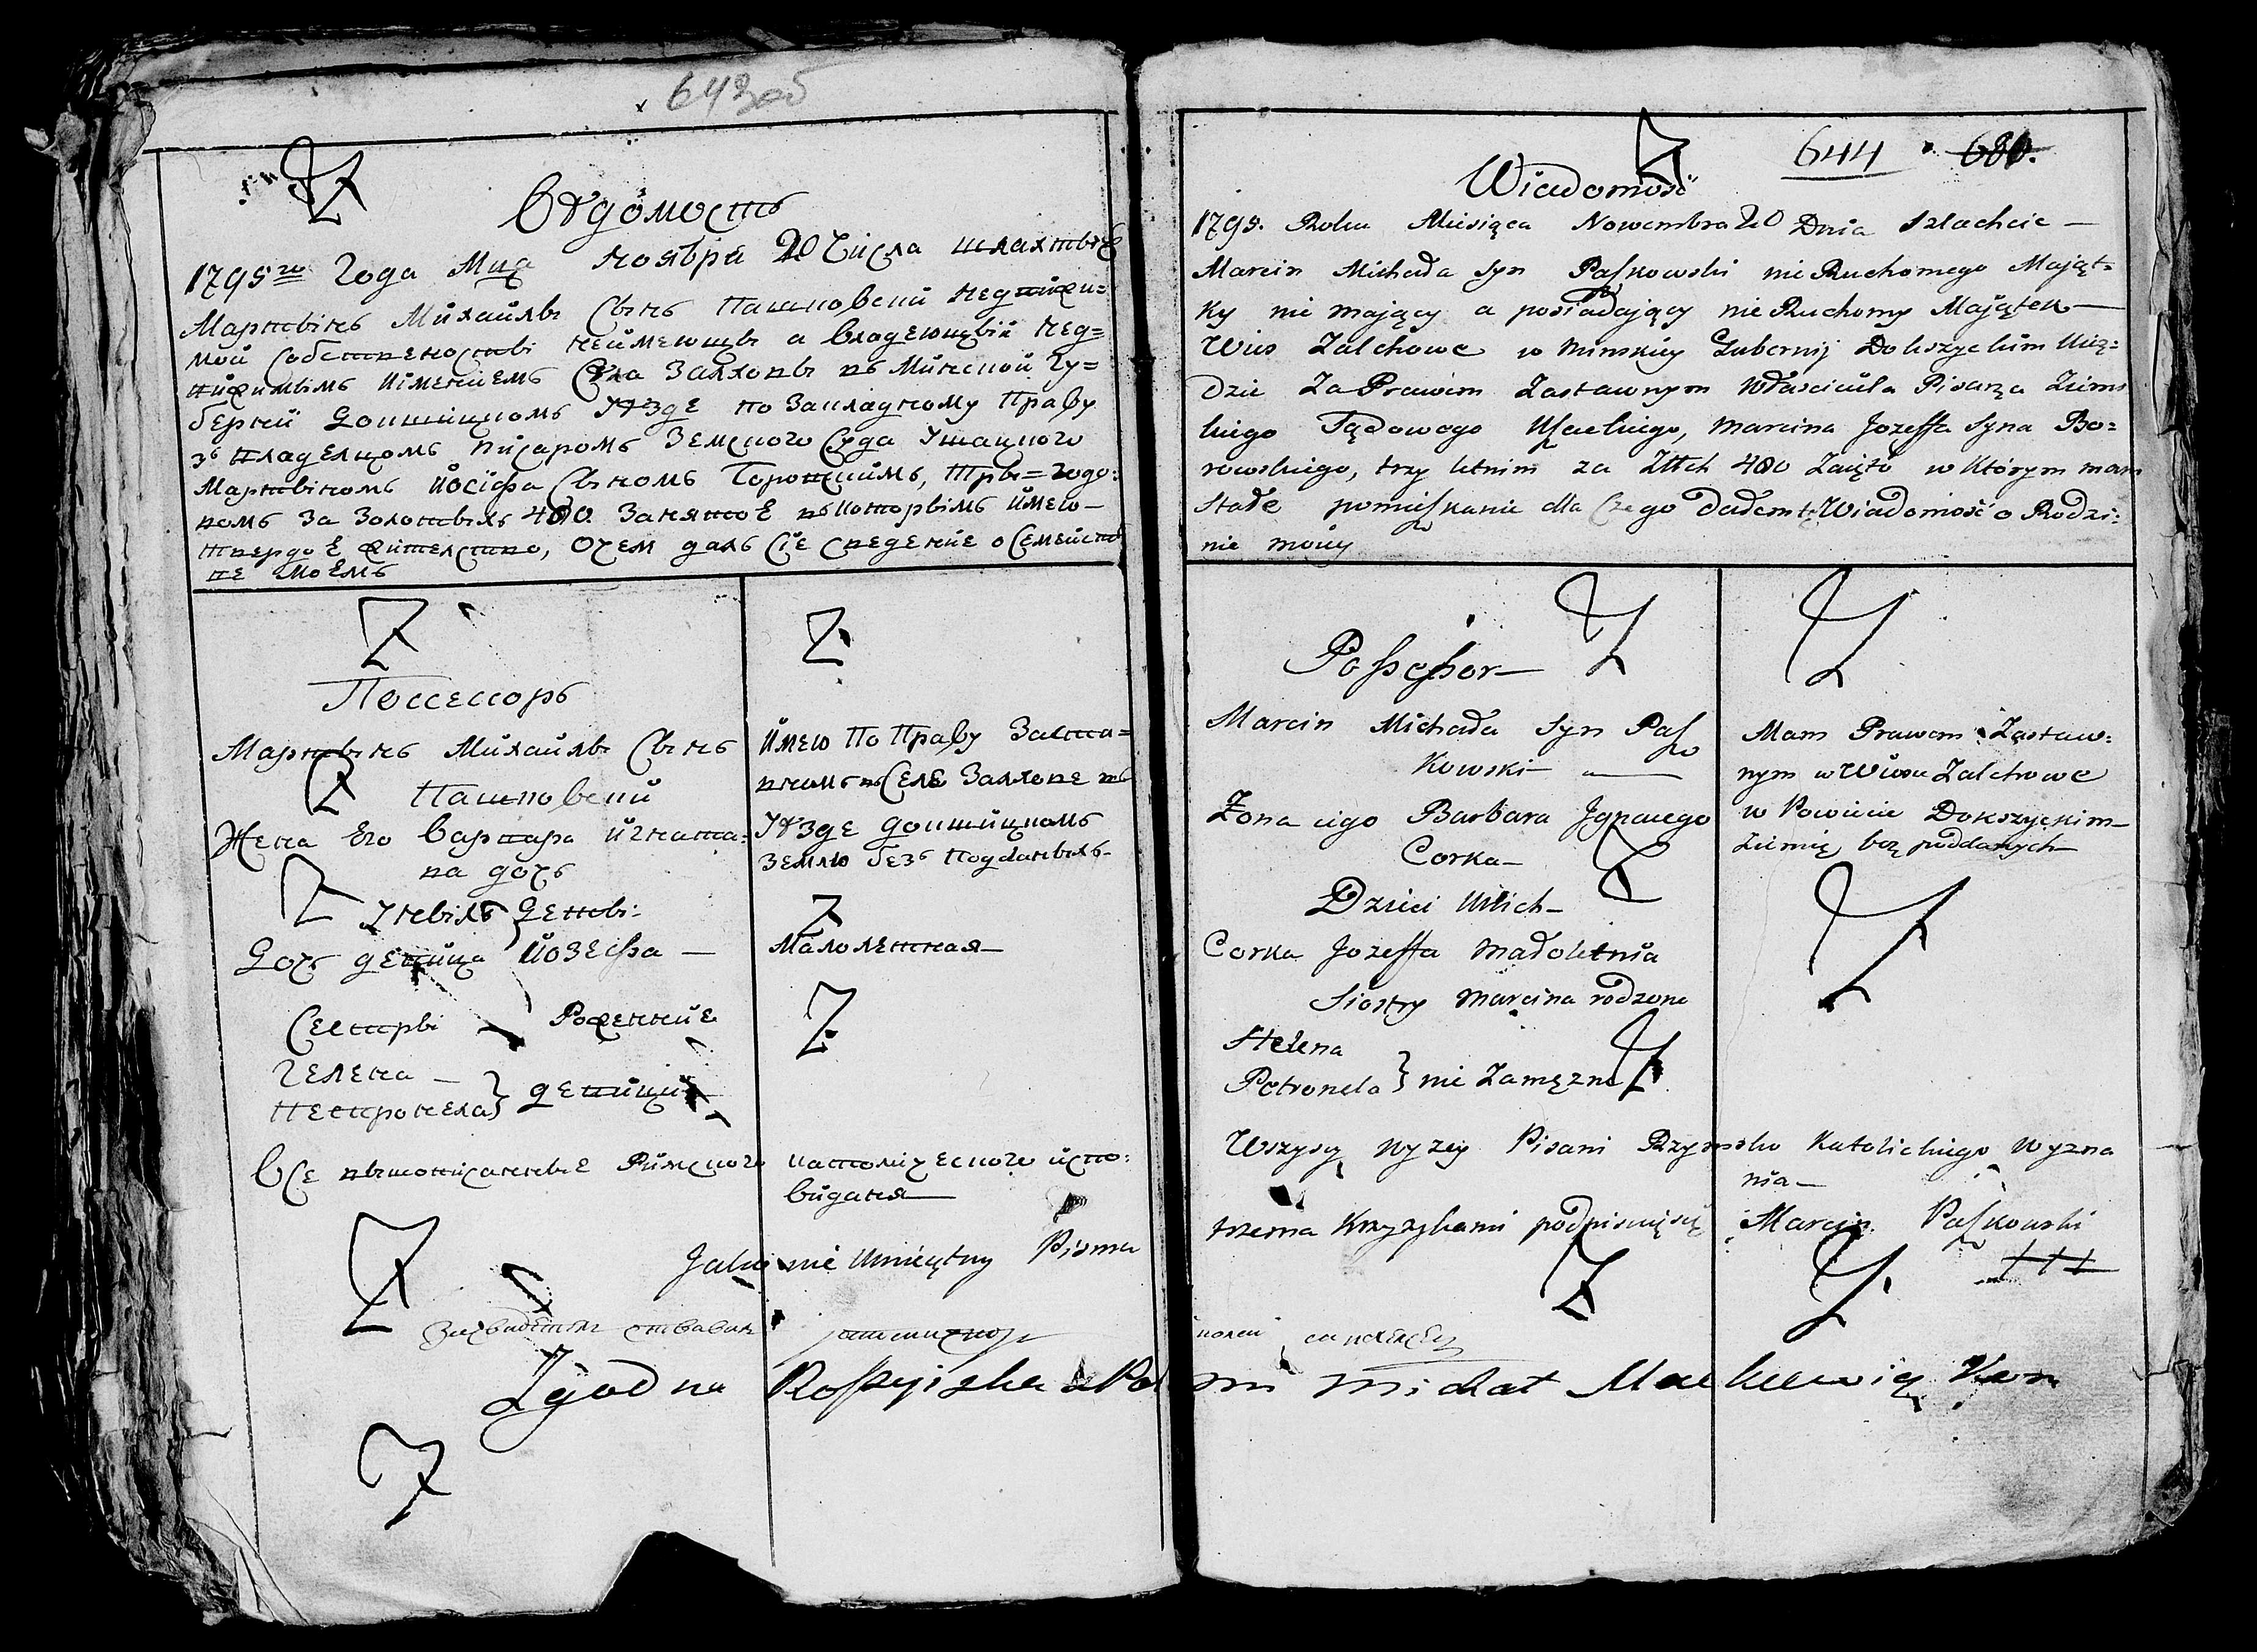 643 об
Вѣдомость
1795го Года Мца Ноября 20 Числа шляхтычъ
Мартынъ Михайлы Сынъ Пашковскй недвижи=
мой собственосты неймеющы а владеющый нед=
вижимымъ Именйемъ Села Залховы въ Минской Гу=
бернй Докшицкомъ Уѣзде по Закладному Праву
зъ владелцомъ Писаромъ Земского Суда Ушацкого
Мартыномъ Йосифа Сыномъ Боровскимъ, Тры=годо:
вомъ за Золотыхъ 480. Занятое въ которымъ Имею—
твердое жителство, Очем далъ Сие сведенйе о Семейст
ве моемъ
Поссессоръ
Мартынъ Михайлы Сынъ
Пашковскй
Жена Его Варвара Йгната:
ва дочъ
Унихъ Деты:
Дочъ девица Йозефа —
Сестры Роженнйе
Гелена —
Петронела } девицы
Имею По Праву Заста=
вномъ въ Селе Залхове въ
Уѣзде Докшицкомъ
землю безъ Подданыхъ
Малолетная—
Все вышопйсанные Римского католическаго йспо:
виданя—
Jako nie Umieiętny Pisma
Zgodna Rossyiska z Pol
644 680.
Wiadomość
1795. Roku Miesiąca Nowembra 20 Dnia Szlachcic —
Marcin Michała Syn Paszkowski nie Ruchomego Mająt=
ky nie mający a posiadający nie Ruchomy Majątek —
Wies Zalchowe w Minskiey Gubernij Dokszyckim Uiz=
dzie Za Prawem Zastawnym Właściciela Pisarza Ziems
kiego Sądowego Uszackiego, Marcina Jozeffa Syna Bo=
rowskiego, trzy letnim za Złtch 480 Zaięto w Którym mam
Stałe pomieszkanie dla Czego dałem tę Wiadomość o Rodzi:
nie moiey
Possessor—
Marcin Michała Syn Pasz
Kowski —
Żona iego Barbara Jgnacego
Corka—
Dzieci Uich—
Corka Jozeffa Małoletnia
Siostry Marcina rodzone
Helena
Petronela } nie Zamęzne
Mam Prawem Zastaw:
nym w Wiosce Zalchowe
w Powiecie Dokszyckim—
Ziemię bez poddanych—
Wszyscy Wyzey Pisani Rzymsko Katolickiego Wyzna
nia—
trzema Krzyzykami podpisuię się Marcin Paszkowski
+++
Michał Mackiewicz Kom